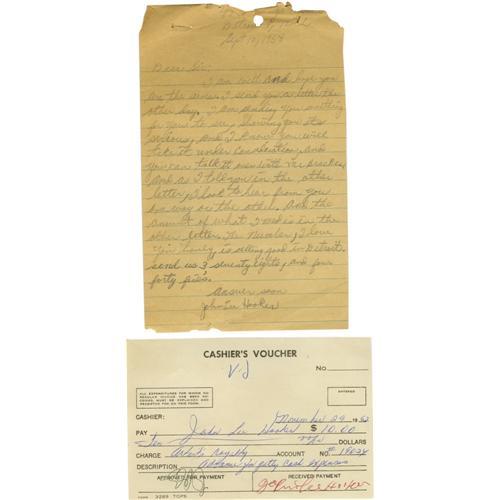 Detroit
Sept 10, 1959
Dear Sir:
I am well and hope you
are the same. I send you a letter the
other day. I am sending you something
for you to see, showing you its
serious, and I know you will
take it under Consideration, and
you can talk it over with
and as I told you in the other
letter, I look to hear from you
one way or the other. And the
amount of what I said is in the
other letter. The Number, I love
You honey, is selling good in Detroit.
send us 3 seventy eights, and four
forty fives.
Answer soon
John Lee Hooker
CASHIER'S VOUCHER
VJ
NO.
ALL EXPENDITURES FOR WHICH NO
REGULAR INVOICE HAS BEEN RE-
CEIVED, MUST BE EXPLAINED AND
RECEIPTED FOR ON THIS FORM
ENTERED
CASHIER: November 29 19
PAY John Lee Hooker $ 10.00
Ten no/100 DOLLARS
CHARGE Artists Royalty ACCOUNT No
DESCRIPTION Advance for petty cash expenses
APPROVED FOR PAYMENT RECEIVED PAYMENT
FORM 3285 TOPS